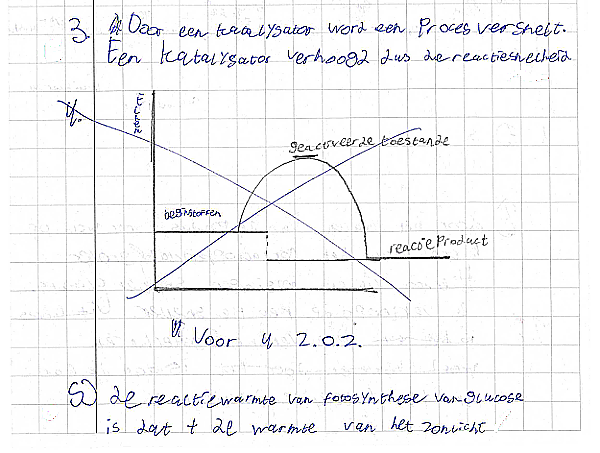 3. Door een kaalysator word een Proces versnelt.
Een katalysator verhoogd dus de reactiesnelheid
4.
geactiveerde toestande
beginstoffen
reactie Product
Voor 4 z.o.z.
5) de reactiewarmte van fotosynthese van glucose
is dat + de warmte van het zonlicht